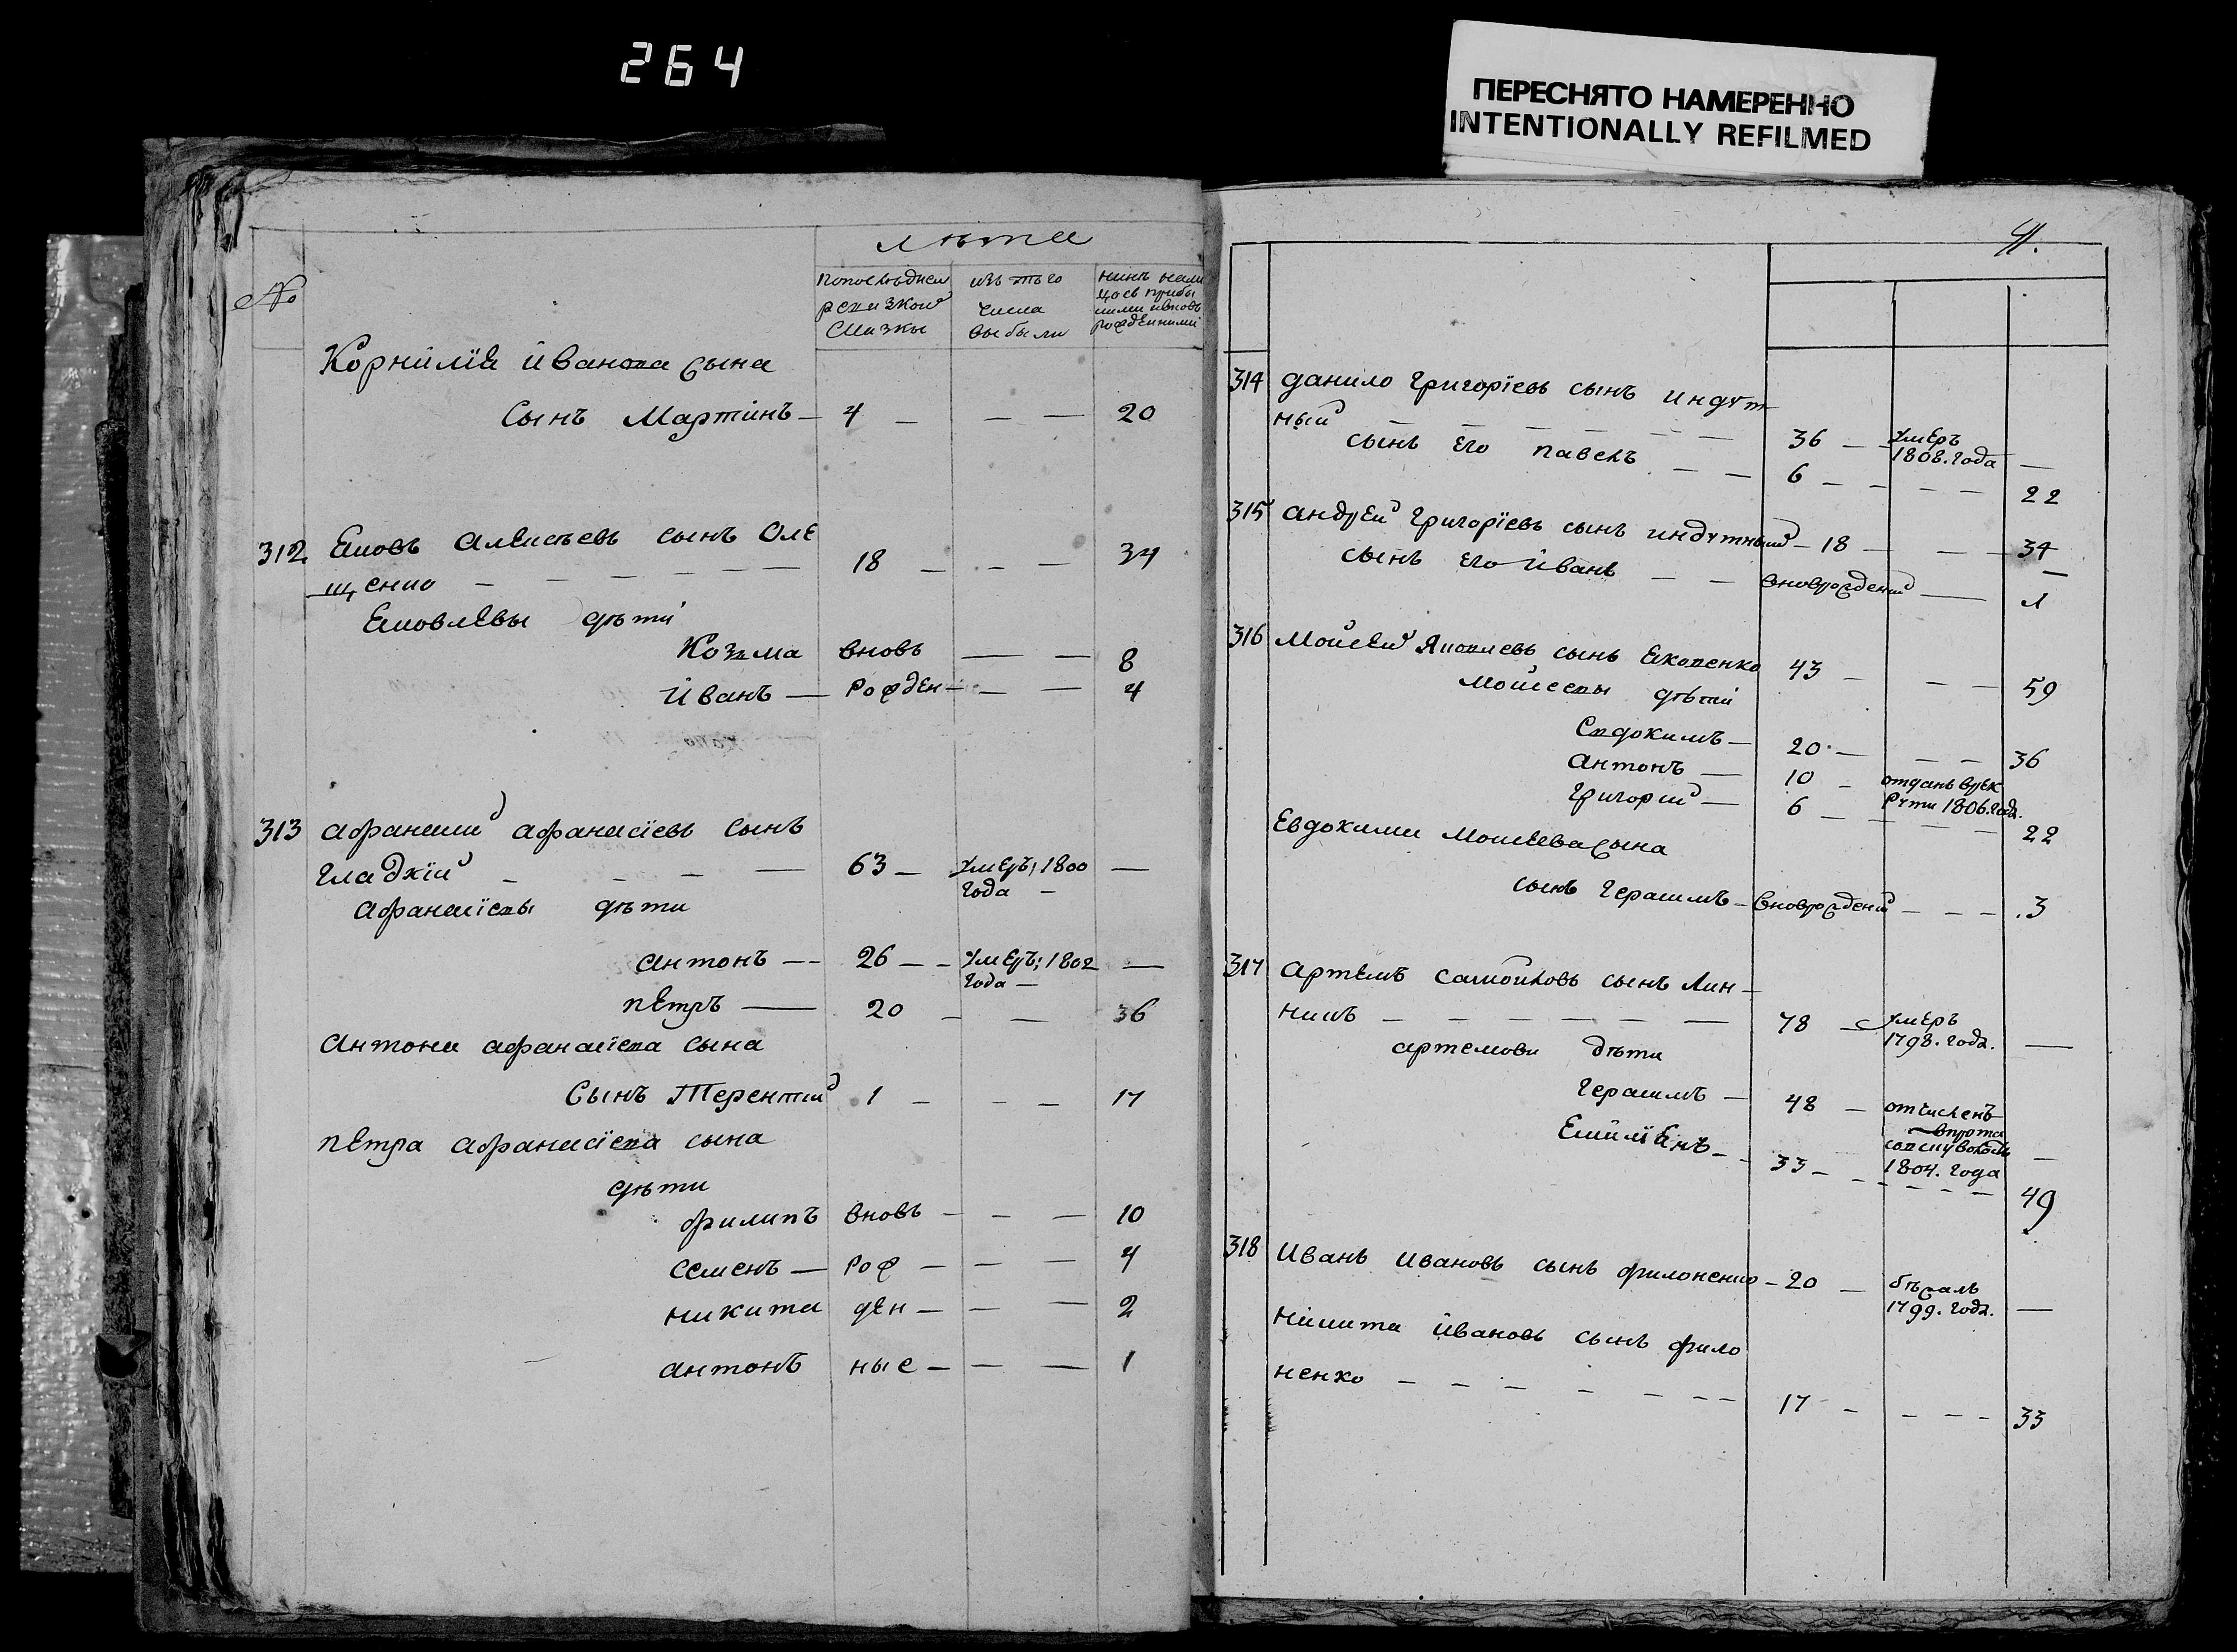 264
ПЕРЕСНЯТО НАМЕРЕННО
INTENTIONALLY REFILMED
№
лѣта
Попоследнеи ревизкои Сказкы
изъ того числа выбыли
нинѣ нали
Корнилія Иванова сына
Сынъ Мартинъ — 4 — — — 20
312 Еков Алексѣевъ сынъ Оле
щенко — — — — — — 18 — — — 34
Ековлевы дѣти
Козма вновь — — 8
Иванъ — рожден — — — 4
313 Афанасий Афанасіевъ сынъ
Гладкій — — — — 63 — умеръ; 1800 года — —
Афанасіевы дѣти
Антонъ — — 26 — — умеръ; 1802 года — —
Петръ — 20 — — 36
Антона Афанасіева сына
Сынъ Терентий 1 — — — 17
Петра Афанасіева сына
дѣти
Филипъ вновь — — — 10
Семенъ — рож — — — 4
Никита ден — — — 2
Антонъ ные — — — 1
41.
314 Данило Григоріевъ сынъ Индут
ный — — — — — — 36 — — умеръ 1808. года —
сынъ его Павелъ — — 6 — — — — 22
315 Андрей Григоріевъ сынъ Индутный — 18 — — — 34
сынъ его Иванъ — — вноврожденій — 1
316 Мойсей Яковлевъ сынъ Ековенко 43 — — — 59
Мойсеевы дѣти
Евдокимъ — 20 — — — 36
Антонъ — 10 — отданъ врек рути 1806. год.
Григорий — 6 — — — — 22
Евдокима Мойсеева сына
сынъ Герасимъ — вноврожденій — — — 3
317 Артемъ Самойловъ сынъ Лин —
никъ — — — — — — 78 — умеръ 1798. года. —
Артемови дѣти
Герасимъ — 48 — отчисленъ 1804. года —
Емиліянъ — — 33 — — — — — — 49
318 Иванъ Ивановъ сынъ Филоненко — 20 — бѣжалъ 1799. года. —
Никита Ивановъ сынъ Фило
ненко — — — — — — — 17 — — — — 33